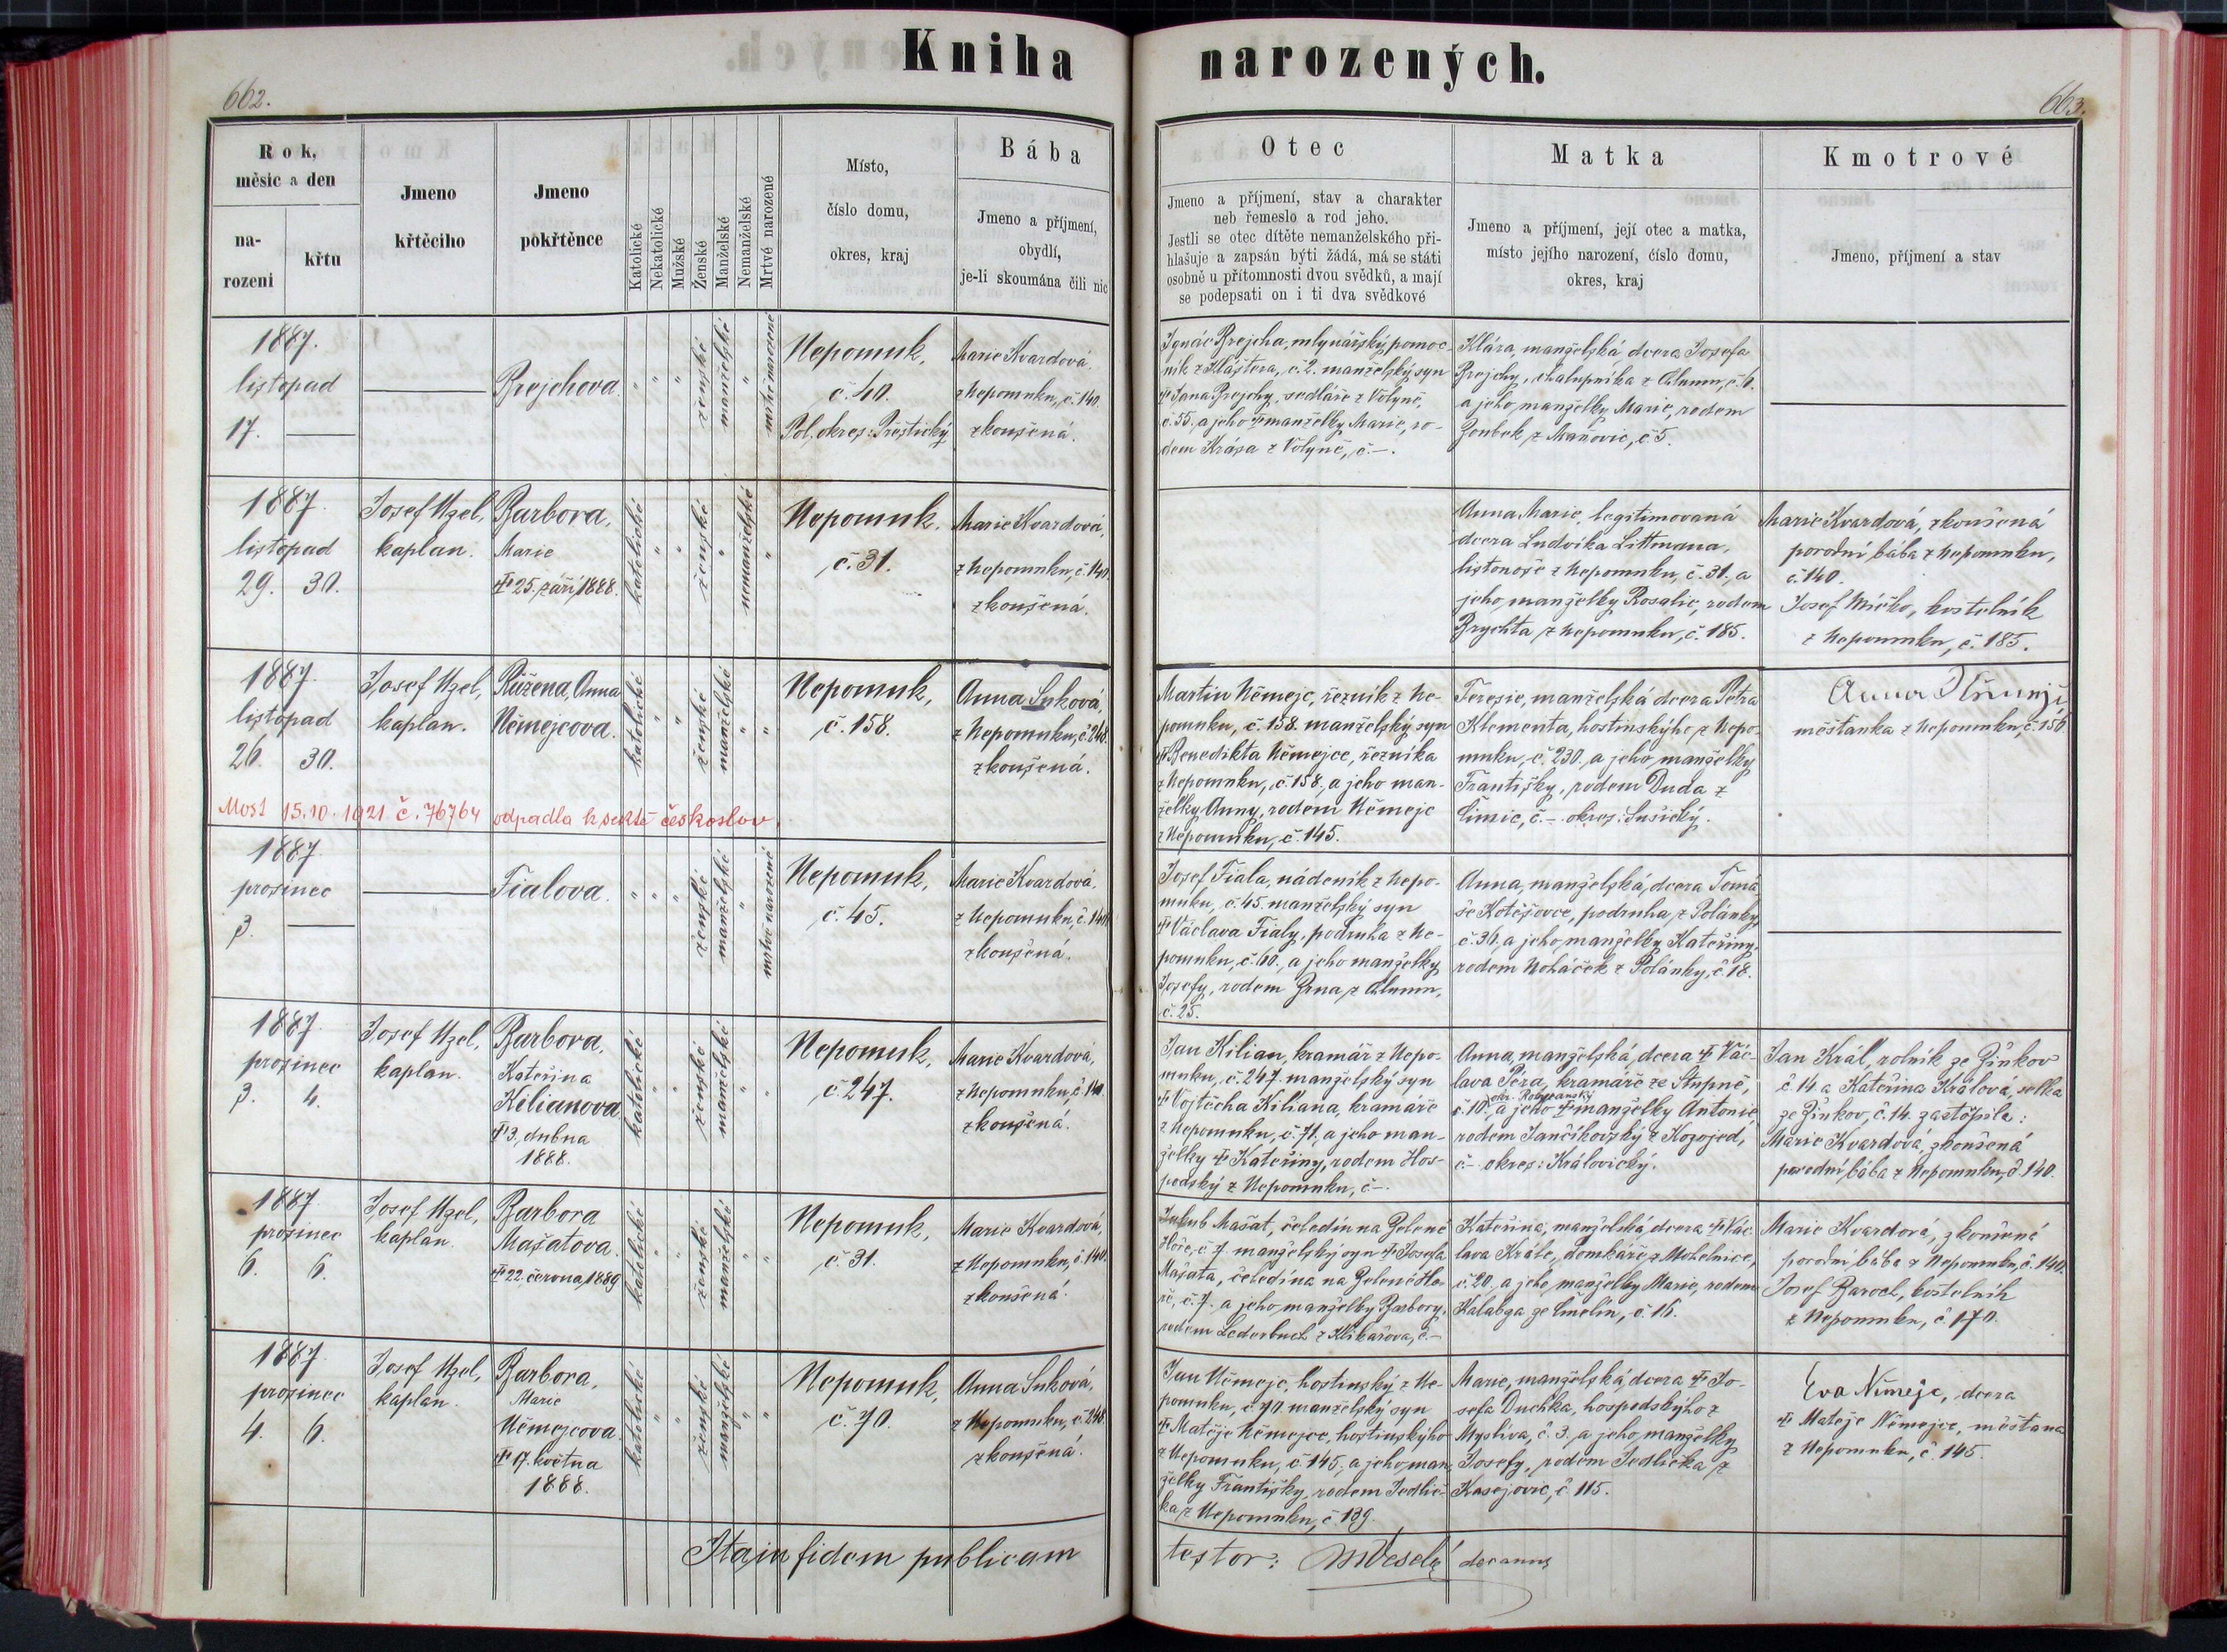 Kniha narozených.
662.
663.
Rok,
měsíc a den
na-
rozeni
křtu
Jmeno
křtěciho
Jmeno
pokřtěnce
Katolické
Nekatolické
Mužské
Ženské
Manželské
Nemanželské
Mrtvé narozené
Místo,
číslo domu,
okres, kraj
Bába
Jmeno a příjmení,
obydlí,
je-li skoumána čili nic
Otec
Jmeno a příjmení, stav a charakter
neb řemeslo a rod jeho.
Jestli se otec dítěte nemanželského při-
hlašuje a zapsán býti žádá, má se státi
osobně u přítomnosti dvou svědků, a mají
se podepsati on i ti dva svědkové
Matka
Jmeno a příjmení, její otec a matka,
místo jejího narození, číslo domu,
okres, kraj
Kmotrové
Jmeno, příjmení a stav
1887.
listopad
17.
Brejchova.
" " "
ženské
manželské
"
mrtvě narozené
Nepomuk,
č. 40.
Pol. okres: Přeštický.
Marie Kvardová.
z Nepomuku, č. 140.
zkoušená.
Ignác Brejcha, mlynářský pomoc-
ník z Kláštera, č. 2. manželský syn
† Jana Brejchy, sedláře z Volyně,
č. 55. a jeho † manželky Marie, ro-
dem Krása z Volyně, č. –.
Klára, manželská dcera Josefa
Brejchy, chalupníka z Chlumu, č. 6.
a jeho manželky Marie, rodem
Zoubek z Maňovic, č. 5.
1887.
listopad
29. 30.
Josef Uzel,
kaplan.
Barbora,
Marie
† 25. září 1888.
katolické
" "
ženské
"
nemanželské
"
Nepomuk.
č. 31.
Marie Kvardová,
z Nepomuku, č. 140.
zkoušená.
Anna Marie, legitimovaná
dcera Ludvíka Littmana,
listonoše z Nepomuku, č. 31., a
jeho manželky Rosalie, rodem
Brychta z Nepomuku, č. 185.
Marie Kvardová, zkoušená
porodní bába z Nepomuku,
č. 140.
Josef Míčko, kostelník
z Nepomuku, č. 185.
1887.
listopad
26. 30.
Josef Uzel,
kaplan.
Růžena, Anna
Němejcova.
katolické
" "
ženské
manželské
" "
Nepomuk,
č. 158.
Anna Suková,
z Nepomuku, č. 248.
zkoušená.
Martin Němejc, řezník z Ne-
pomuku, č. 158. manželský syn
† Benedikta Němejce, řezníka
z Nepomuku, č. 158., a jeho man-
želky Anny, rodem Němejc
z Nepomuku, č. 145.
Teresie, manželská dcera Petra
Klementa, hostinskýho z Nepo-
muku, č. 230., a jeho manželky
Františky, rodem Duda z
Čimic, č. –. okres: Sušický.
Anna
měšťanka z Nepomuku, č. 156.
Most 15.10.1921 č. 76764 odpadla k sektě českoslov.
1887
prosinec
3.
Fialova.
" " "
ženské
manželské
"
mrtvě narozené
Nepomuk,
č. 45.
Marie Kvardová,
z Nepomuku, č. 140.
zkoušená.
Josef Fiala, nádeník z Nepo-
muku, č. 45. manželský syn
† Václava Fialy, podruha z Ne-
pomuku, č. 60., a jeho manželky
Josefy, rodem Zrna z Chlumu,
č. 25.
Anna, manželská, dcera Tomá-
še Kotěšovce, podruha z Polánky,
č. 36. a jeho manželky Kateřiny,
rodem Noháček z Polánky, č. 18.
1887
prosinec
3. 4.
Josef Uzel,
kaplan.
Barbora,
Kateřina
Kilianova
† 3. dubna
1888.
katolické
" "
ženské
manželské
" "
Nepomuk,
č. 247.
Marie Kvardová,
z Nepomuku, č. 140.
zkoušená.
Jan Kilian, kramář z Nepo-
muku, č. 247. manželský syn
† Vojtěcha Kiliana, kramáře
z Nepomuku, č. 71. a jeho man-
želky † Kateřiny, rodem Hos-
podský z Nepomuku, č –.
Anna, manželská, dcera † Vác-
lava Péra, kramáře ze Stupně,
okr. Rokycanský
č. 10., a jeho † manželky Antonie
rodem Jančíkovský z Kozojed,
č –. okres: Královický.
Jan Král, rolník ze Žinkov
č. 14. a Kateřina Králová, selka
ze Žinkov, č. 14. zastoupila:
Marie Kvardová, zkoušená
porodní bába z Nepomuku, č. 140.
1887
prosinec
6. 6.
Josef Uzel,
kaplan.
Barbora
Mašatova.
† 22. června 1889
katolické
" "
ženské
manželské
" "
Nepomuk,
č. 31.
Marie Kvardová,
z Nepomuku, č. 140.
zkoušená.
Jakub Mašat, čeledín na Zelené
Hoře, č. 7. manželský syn † Josefa
Mašata, čeledína na Zelené Ho-
ře, č. 7. a jeho manželky Barbory,
rodem Lederbuch z Klikařova, č. –
Kateřina, manželská, dcera † Vác-
lava Krále, domkáře z Mohelnice,
č. 20., a jeho manželky Marie, rodem
Kalabza ze Čmelín, č. 16.
Marie Kvardová, zkoušená
porodní bába z Nepomuku, č. 140.
Josef Baroch, kostelník
z Nepomuku, č. 170.
1887
prosinec
4. 6.
Josef Uzel,
kaplan.
Barbora,
Marie
Němejcova
† 17. května
1888.
katolické
" "
ženské
manželské
" "
Nepomuk,
č. 70.
Anna Suková,
z Nepomuku, č. 248.
zkoušená.
Jan Němejc, hostinský z Ne-
pomuku, č. 70. manželský syn
† Matěje Němejce, hostinskýho
z Nepomuku, č. 145., a jeho man-
želky Františky, rodem Jedlič-
ka z Nepomuku, č. 139.
Marie, manželská, dcera † Jo-
sefa Duchka, hospodskýho z
Myslíva, č. 3. a jeho manželky
Josefy, rodem Jedlička z
Kasejovic, č. 115.
Eva Němejc, dcera
† Matěje Němejce, měšťana
z Nepomuku, č. 145.
Ita in fidem publicam
testor: Veselý decanus